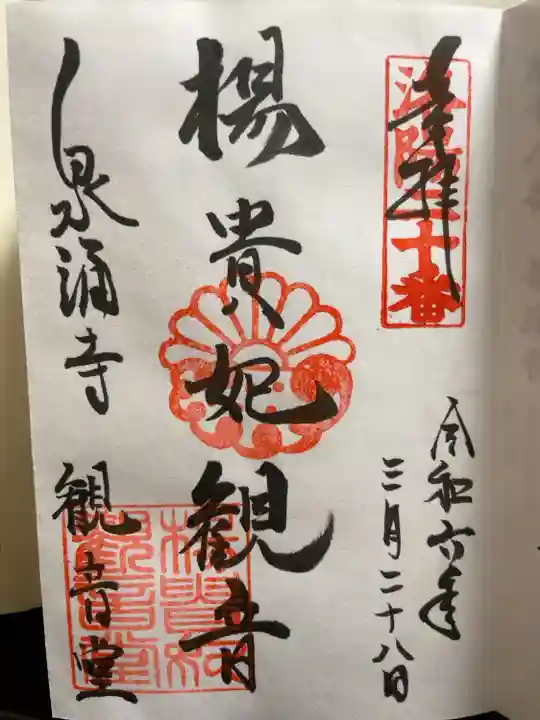 奉拝
洛陽二十番
令和六年
三月二十八日
楊貴妃観音
泉涌寺 観音堂
楊貴妃
観音堂